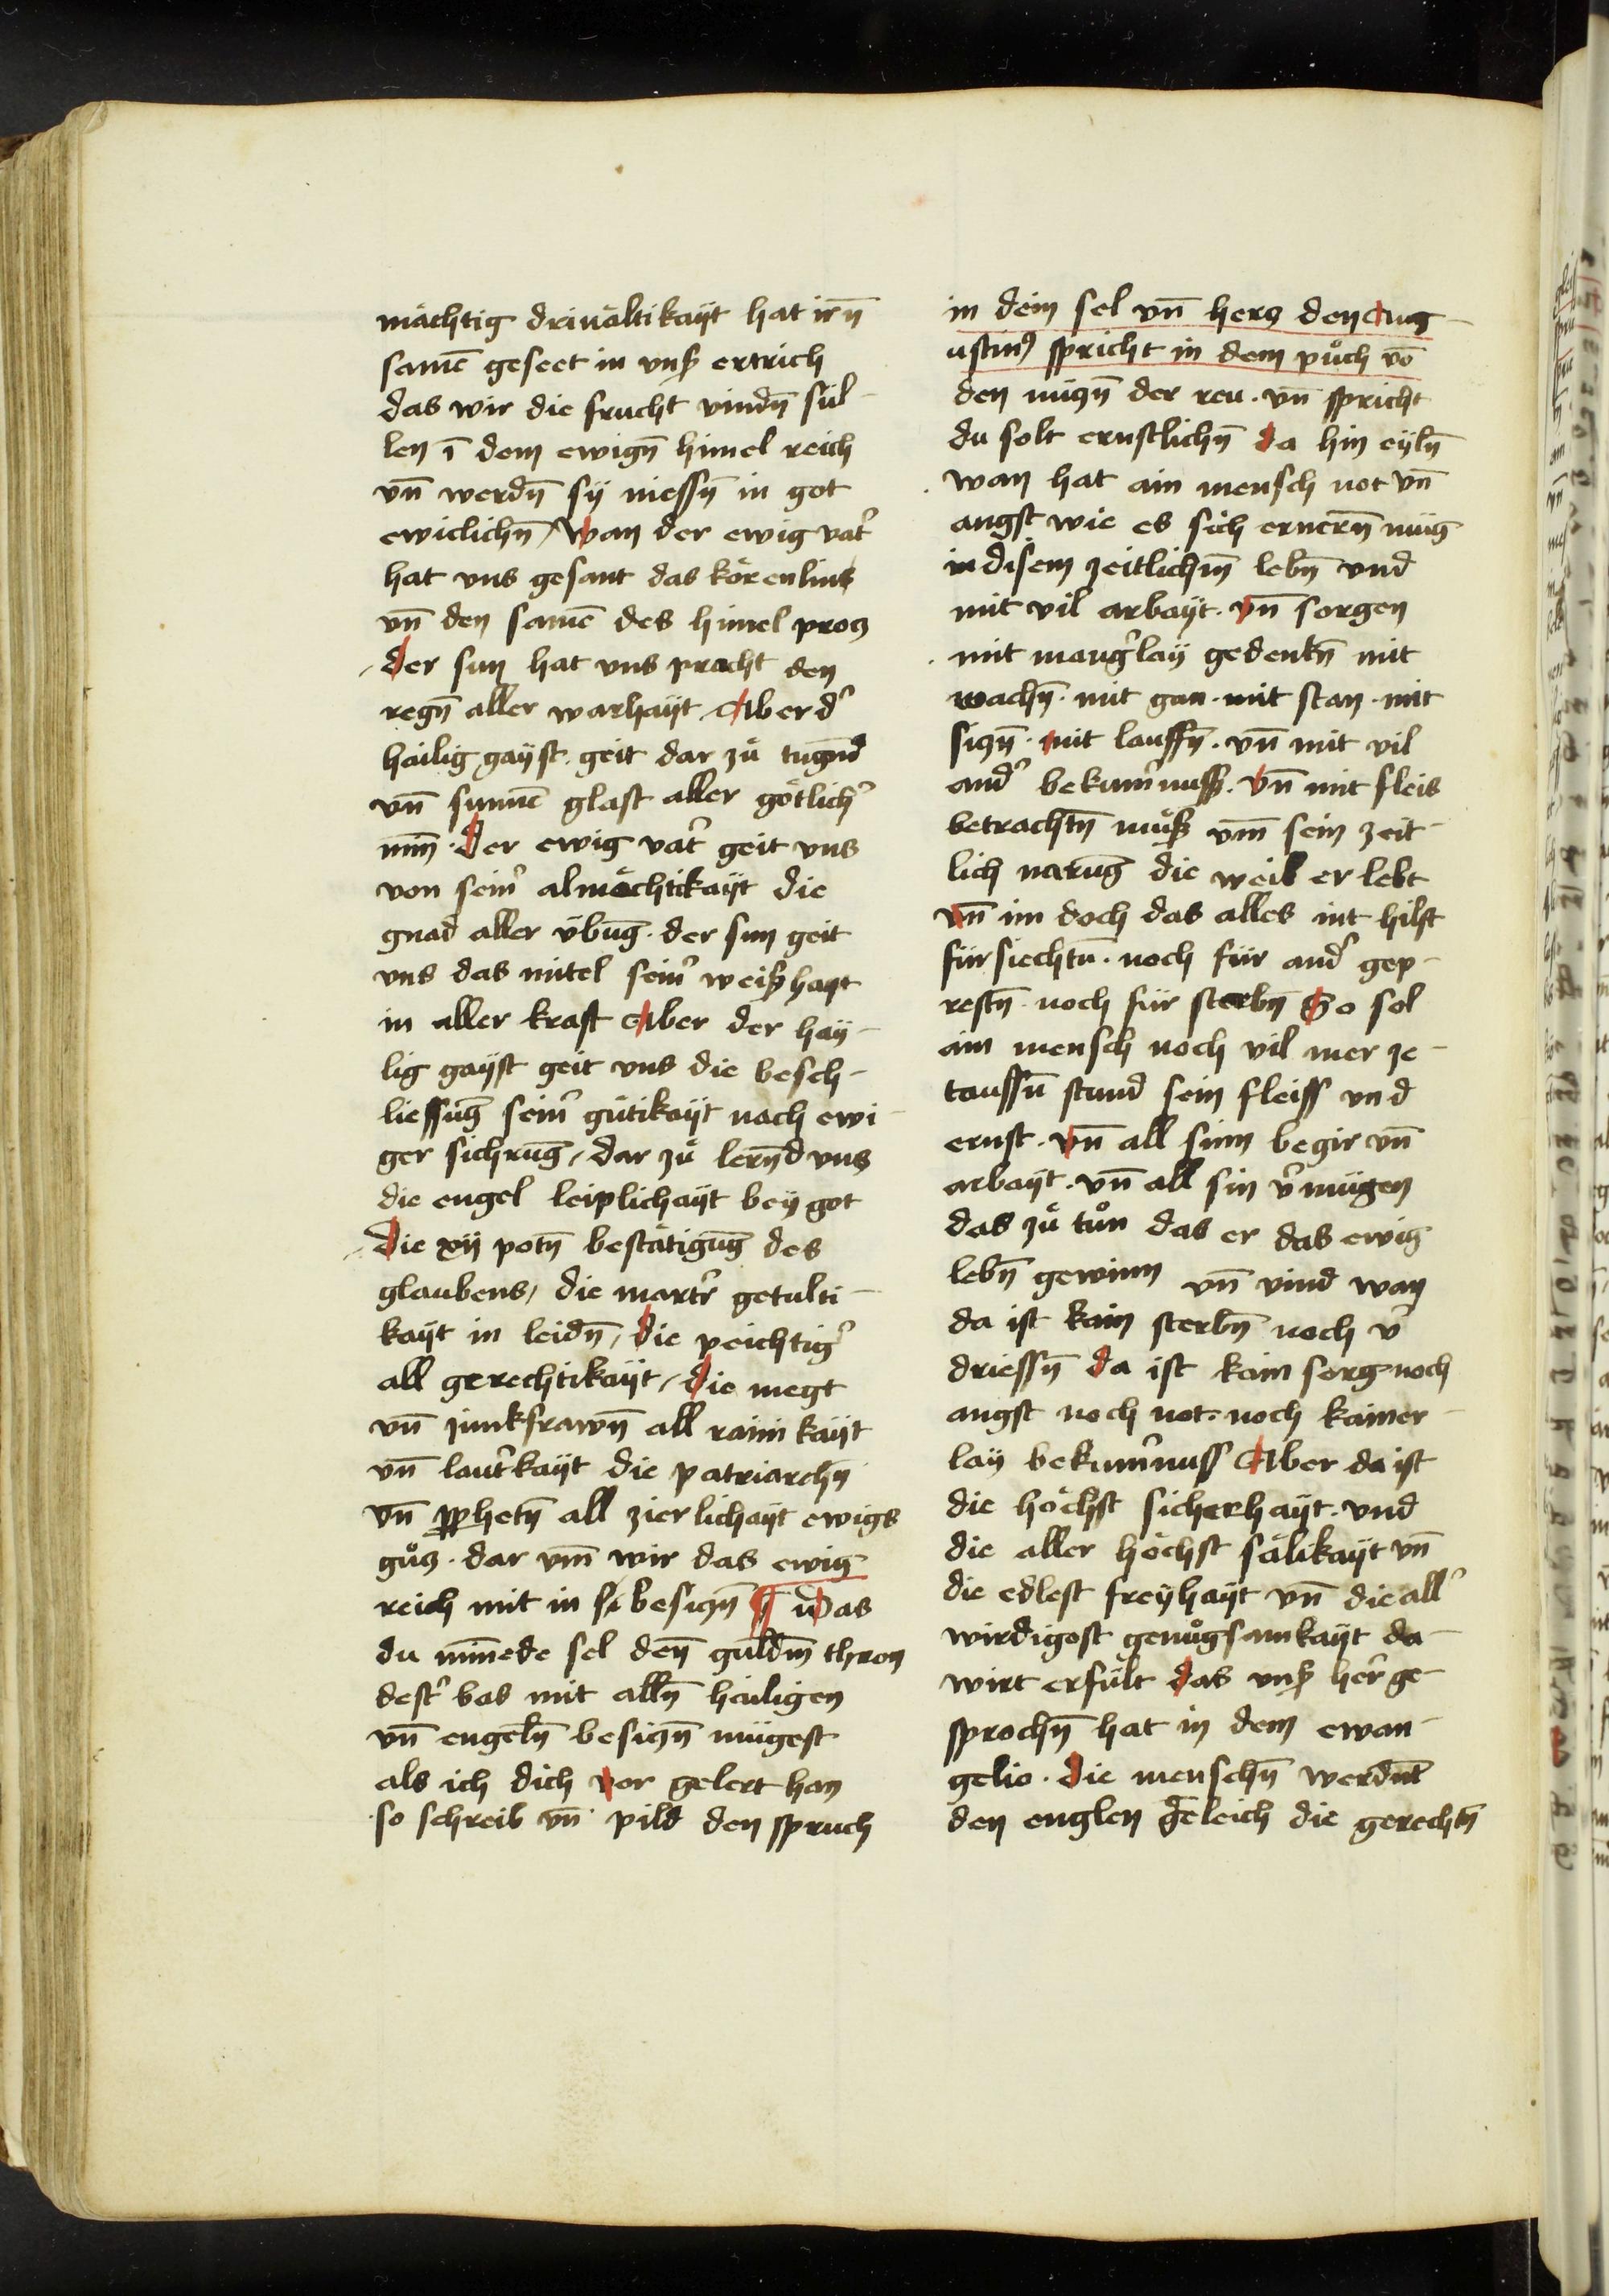 mächtig driuältikayt hat irn̄
samē geseet in vnsß ertrich
das wir die frucht vindn̄ sül-
len ī dem ewign̄ himel reich
vn̄ werdn̄ sy niessn̄ in got
ewiclichn̄ / wan der ewig vat'
hat vns gesant das körenlins
vn̄ den samē des himel procz
/ der sun hat vns pracht den
regn̄ aller warhayt. Aber d'
heilig gayst. geit dar zů tugn̄d
vn̄ sunnē glast aller götlich'
min̄. Der ewig vat' geit vns
von sein' almächtikayt die
gnad aller übūg. der sun geit
vns das mitel sein' weißhayt
in aller kraft Aber der hay-
lig gayst geit vns die besch-
liessūg sein' gütikayt nach ewi-
ger sichrūg / dar zů lern̄d vns
die engel leiplichayt bey got
/ die xij potn̄ bestätigūg des
glaubens / die martr' getulti-
kayt in leidn̄ / die peichtig'
all gerechtikayt / die megt
vn̄ junkfrawn̄ all rainikayt
vn̄ laut'kayt die patriarchn̄
vn̄ ꝓphetn̄ all zierlichayt ewigs
gůcz. dar vm̄ wir das ewig
reich mit in besiczn̄ ¶ Das
du min̄ede sel den̄ guldin̄ thron
dest' bas mit alln̄ heiligen
vn̄ engeln̄ besiczn̄ mügest
als ich dich vor gelert han
. so schreib vn̄ pild den spruch
in dein sel vn̄ hercz den Aug-
ustin9 spricht in dem půch vō
den nüczn̄ der reu. vn̄ spricht
du solt ernstlichn̄ da hin eyln̄
. wan hat ain mensch not vn̄
angst wie es sich ernern̄ müg
in disem zeitlichm̄ lebn̄ vnd
mit vil arbayt. vn̄ sorgen
. mit mang'lay gedenkn̄ mit
wachn̄. mit gan. mit stan. mit
siczn̄. mit lauffn̄. vn̄ mit vil
and' bekum'nuß. vn̄ mit fleis
betrachtn̄ můß vm̄ sein zeit-
lich narūg die weil er lebt
vn̄ im doch das alles nit hilft
für siechtū. noch für and' gep-
restn̄ noch für sterbn̄ So sol
ain mensch noch vil mer ze-
taussn̄ stund sein fleiss vnd
ernst. vn̄ all sinn begir vn̄
arbayt. vn̄ all sin v'mügen
das zů tůn das er das ewig
lebn̄ gewinn vn̄ vind wan
da ist kain sterbn̄ noch v'
driessn̄ da ist kain sorg noch
angst noch not. noch kainer-
lay bekum'nuss Aber da ist
die höchst sicherhayt. vnd
die aller höchst sälikayt vn̄
die edlest freyhayt vn̄ die all'
wirdigost genůgsamkayt da-
wirt erfült das vnsß her' ge-
sprochn̄ hat in dem ewan-
gelio. Die menschn̄ werdn̄t
den englen geleich die gerechtn̄